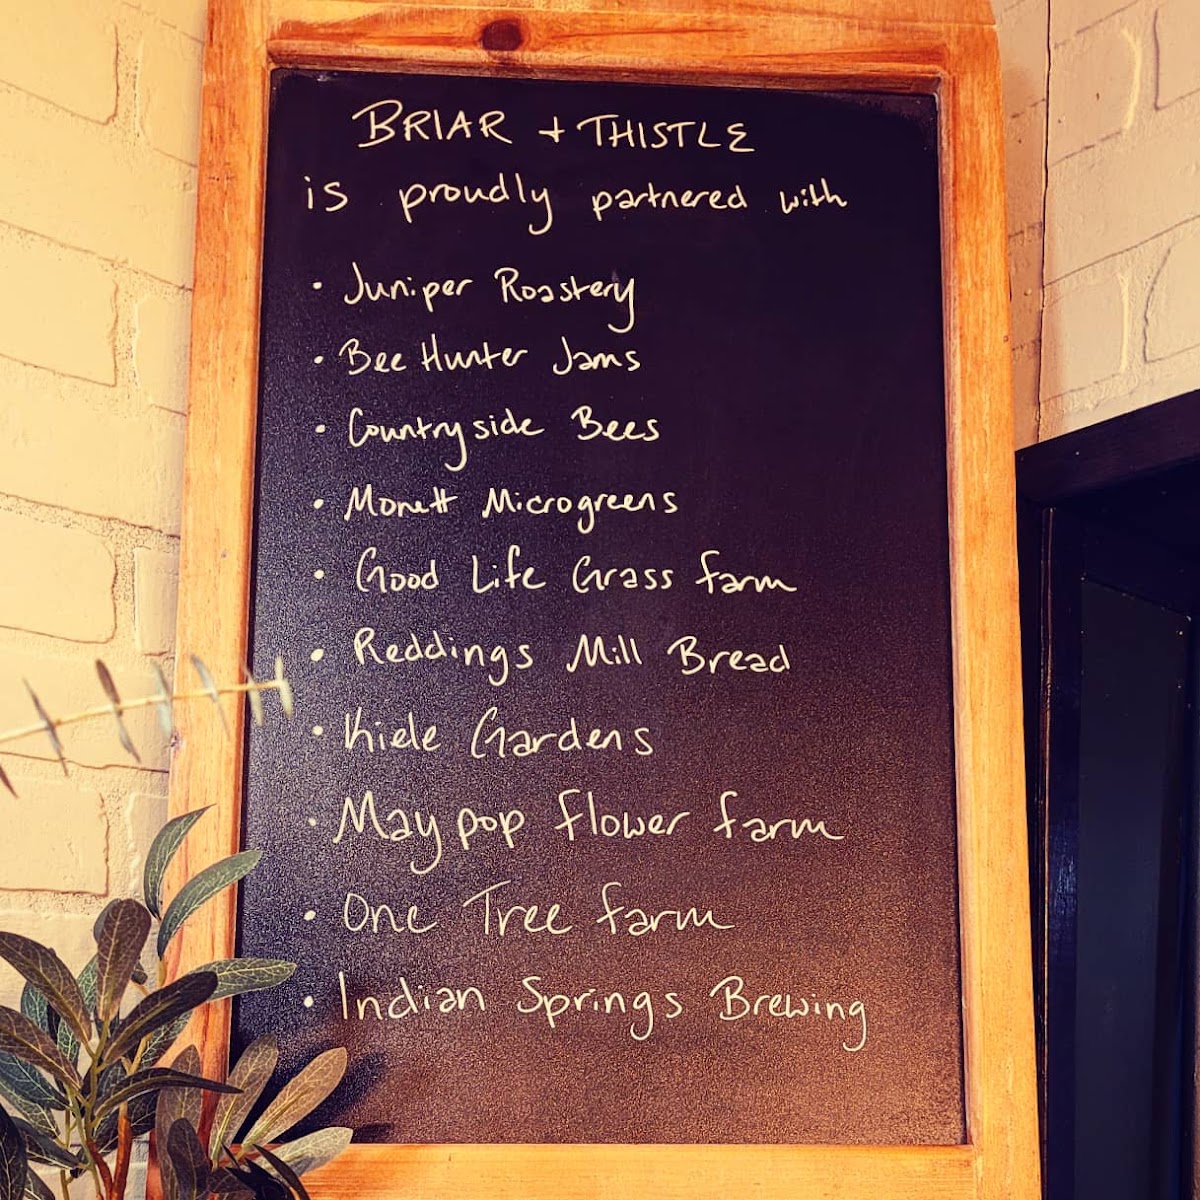 BRIAR + THISTLE
is proudly partnered with
• Juniper Roastery
• Bee Hunter Jams
• Countryside Bees
• Monett Microgreens
• Good Life Grass farm
• Reddings Mill Bread
• Kiele Gardens
• Maypop flower farm
• One Tree farm
• Indian Springs Brewing